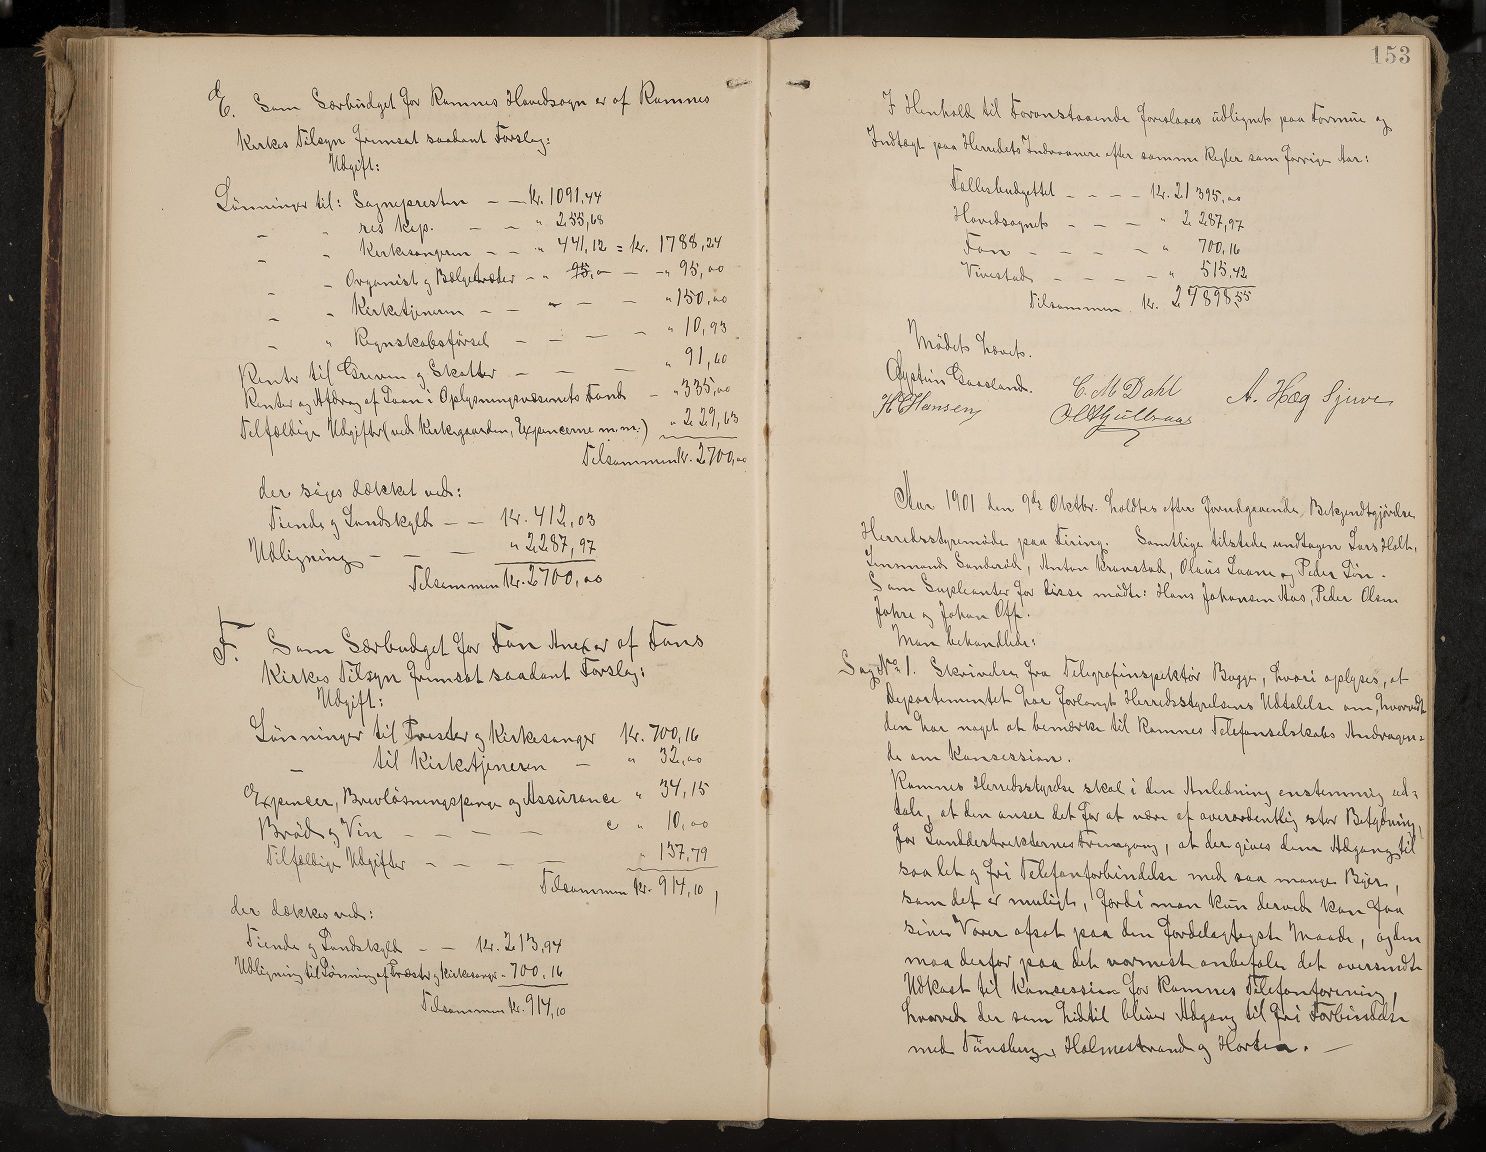 E. Som Særbudget for Ramnes Hovedsogn er af Ramnes
Kirkes Tilsyn fremsat saadant Forslag:
Udgift:
Lønninger til: Sognepresten — — Kr. 1091,44
— " res kap. — — " 255,68
— " Kirkesangeren — — " 441,12 = Kr. 1788,24
— " Organist og Bælgetræder — " 95,— — — " 95,00
— " Kirketjeneren — — " — — " 150,00
— " Regnskabsførsel — — — — " 10,93
Renter til Greven og Skatter — — — " 91,60
Renter og Afdrag af Laan i Oplysningsvæsenets Fond — " 335,00
Tilfældige Udgifter (ved Kirkegaarden, Expencerne m.m.) " 229,63
Tilsammen Kr. 2700,00
der søges dækket ved:
Tiende og Landskyld — — Kr. 412,03
Udligning — — — " 2287,97
Tilsammen Kr. 2700,00
F. Som Særbudget for Fon Anex er af Fons
Kirkes Tilsyn fremsat saadant Forslag:
Udgift:
Lønninger til Prester og Kirkesanger Kr. 700,16
— til Kirketjeneren — " 32,00
Expencer, Brevløsningspenge og Assurance " 34,15
Brød og Vin — — — — " 10,00
Tilfældige Udgifter — — — — " 137,79
Tilsammen Kr. 914,10
der dækkes ved:
Tiende og Landskyld — — Kr. 213,94
Udligning til Lønning af Præster og Kirkesanger " 700,16
Tilsammen Kr. 914,10
153
I Henhold til Foranstaaende foreslaaes udlignet paa Formue og
Indtægt paa Herredets Indvaanere efter samme Regler som forrige Aar:
Fællesbudgettet — — — — Kr. 21 395,00
Hovedsognets — — — " 2 287,97
Fon — — — — " 700,16
Vivestad — — — — " 515,42
Tilsammen Kr. 24898,55
Mødet hævet.
Øystein Gaasland. C. M Dahl A. Høeg Sjuve
H C Hansen O H Gullhaug
Aar 1901 den 9de Oktbr. holdtes efter forudgaaende Bekjendtgjørelse
Herredsstyremøde paa Firing. Samtlige tilstede undtagen Lars Holt,
Sanderød, Anton Kranstad, Olaus Laane og Peder Løn.
Som Supleanter for disse mødte: Hans Johansen Aas, Peder Olsen
Jahre og Johan
Man behandlede:
Sag No 1. Skrivelse fra Telegrafinspektør Bugge, hvori oplyses, at
Departementet har forlangt Herredsstyrelsens Udtalelse om, hvorvidt
den har noget at bemærke til Ramnes Telefonselskabs Andragen=
de om Konsession.
Ramnes Herredsstyrelse skal i den Anledning enstemmig ud=
tale, at den anser det for at være af overordentlig stor Betydning,
for Landdistrikternes Fremgang, at der gives dem Adgang til
saa let og fri Telefonforbindelse med saa mange Byer,
som det er muligt, fordi man kun derved kan faa
sine Varer afsat paa den fordelagtigste Maade, og den
maa derfor paa det varmest anbefale det oversendte
Udkast til Konsession for Ramnes Telefonforening,
hvorved der som hidtil bliver Adgang til fri Forbindelse
med Tønsberg, Holmestrand og Horten. —